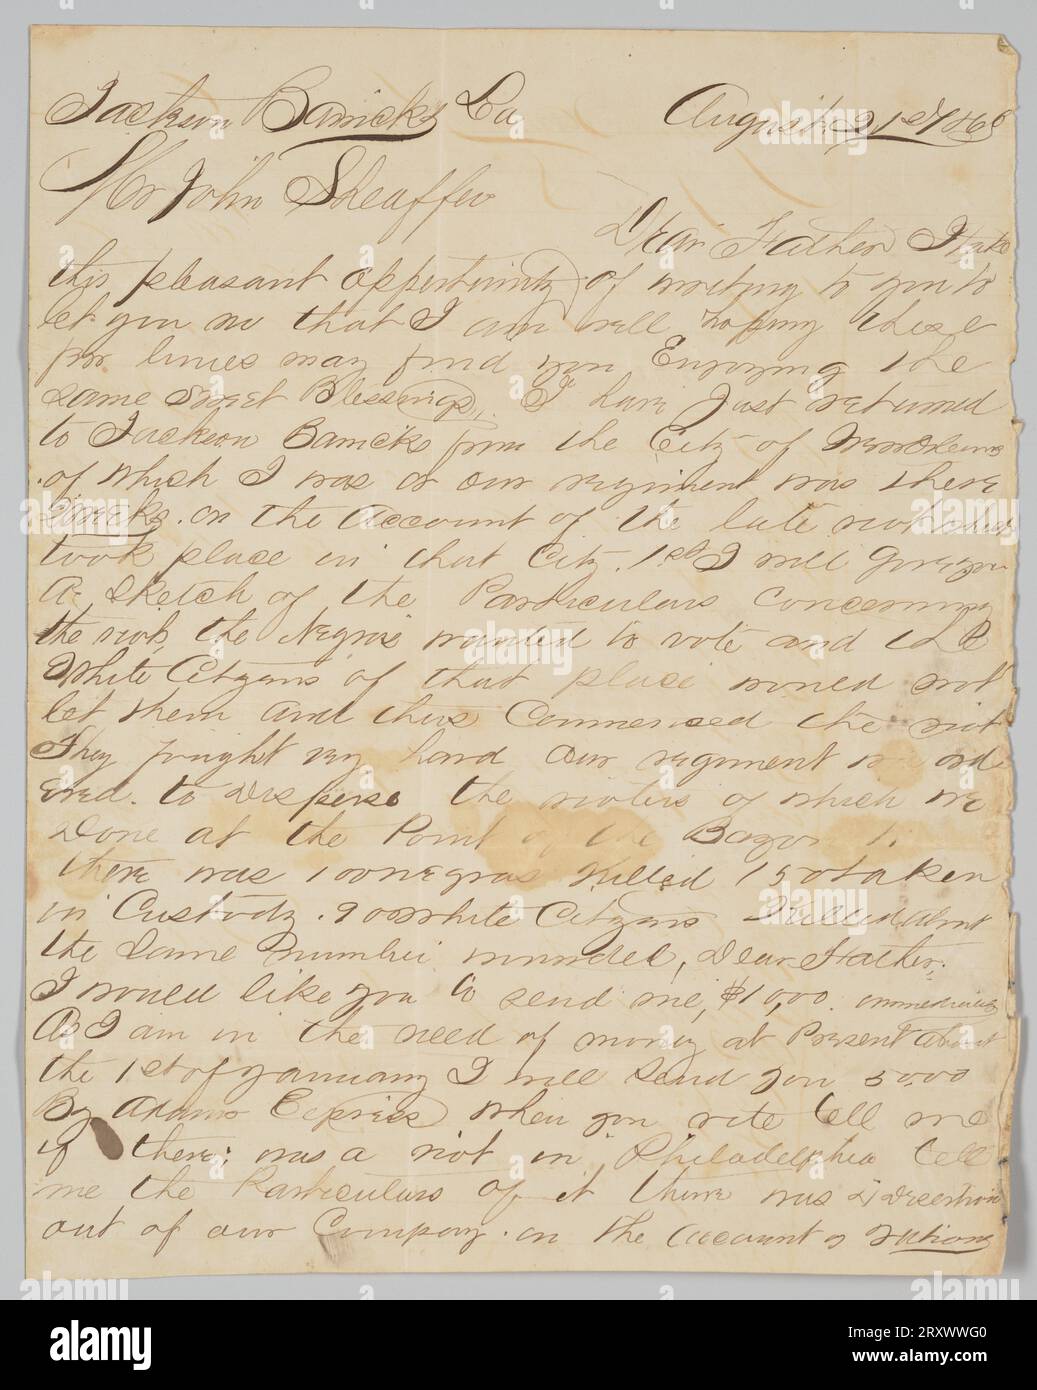 Jackson Barricks La August 21st 1866
Mr John Sheaffer
Dear Father I take
this pleasant oppertunity of writing to you to
let you no that I am well hoping these
few lines may find you Enjoying the
same sweet Blessings, I have Just returned
to Jackson Barricks from the City of New Orleans
of which I was or our regiment was there
3 weeks on the Account of the late riot which
took place in that City. 1st I will give you
A Sketch of the Particulars concerning
the riot, the Negros wanted to vote and the
White Citzens of that place would not
let them and thus Commensed the riot
They fought very hard Our regiment was ord
ered to Disperse the rioters of which we
Done at the Point of the Bagonet
there was 100 negros Killed 150 taken
in Custody. 900 White Citzens Killed about
the same number wounded, Dear Father,
I would like you to send me, $10,00. immediately
As I am in the need of money at Present about
the 1st of January I will send you 5000
By Adams Express when you rite tell me
if there was a riot in Philadelphia tell
me the Particulars of it there was 21 Desertion
out of our Company on the account of rations
alamy
alamy
Image ID: 2RXWWG0
www.alamy.com